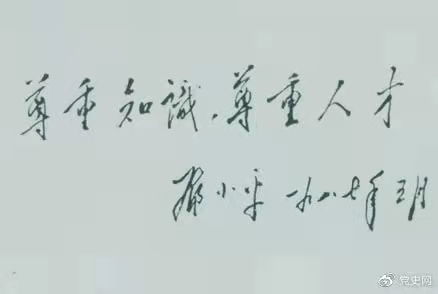 尊重知識，尊重人才
邓小平 一九八七年五月
@党史网